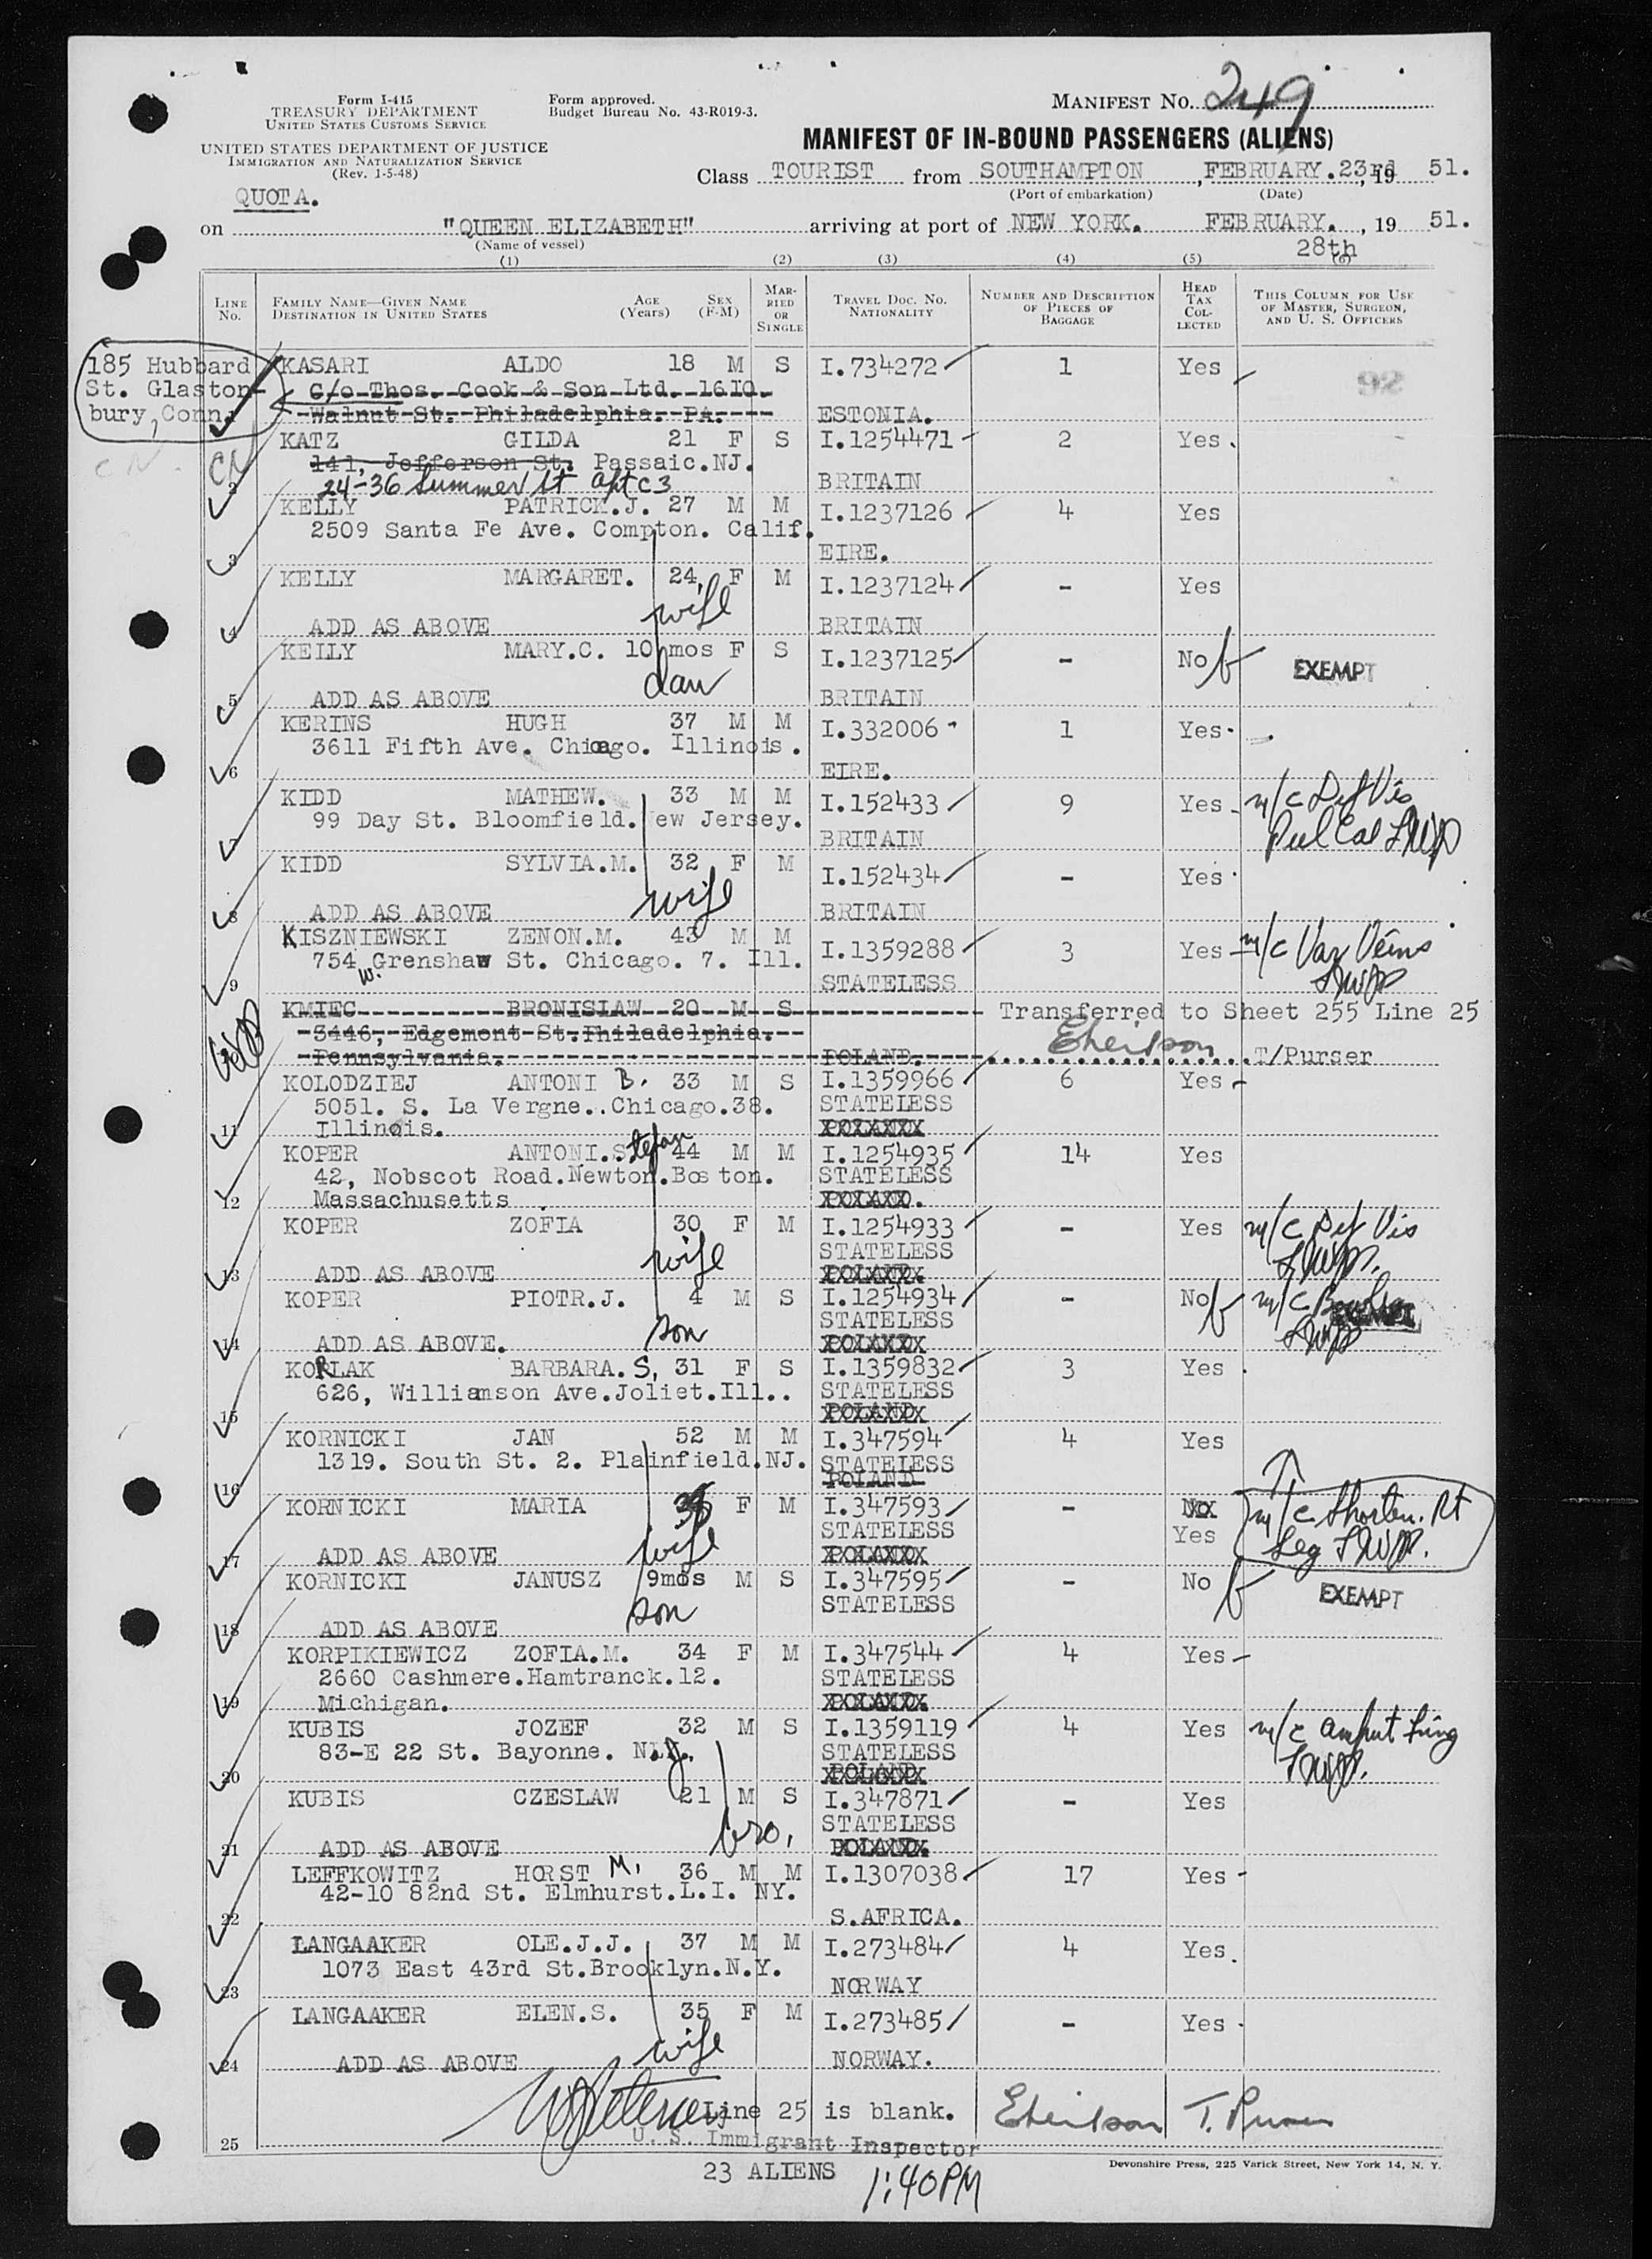 Form I-415
TREASURY DEPARTMENT
UNITED STATES CUSTOMS SERVICE
UNITED STATES DEPARTMENT OF JUSTICE
IMMIGRATION AND NATURALIZATION SERVICE
(Rev. 1-5-48)
Form approved.
Budget Bureau No. 43-R019-3.
MANIFEST NO. 249
MANIFEST OF IN-BOUND PASSENGERS (ALIENS)
Class TOURIST from SOUTHAMPTON, FEBRUARY.23rd, 19 51.
(Port of embarkation) (Date)
QUOTA.
on "QUEEN ELIZABETH" arriving at port of NEW YORK. FEBRUARY. , 19 51.
(Name of vessel) 28th
(1) (2) (3) (4) (5) (6)
LINE NO. FAMILY NAME—GIVEN NAME DESTINATION IN UNITED STATES AGE (Years) SEX (F-M) MARRIED OR SINGLE TRAVEL DOC. NO. NATIONALITY NUMBER AND DESCRIPTION OF PIECES OF BAGGAGE HEAD TAX COLLECTED THIS COLUMN FOR USE OF MASTER, SURGEON, AND U. S. OFFICERS
185 Hubbard
St. Glaston-
bury, Conn.
KASARI ALDO 18 M S I.734272 1 Yes 92
C/o Thos. Cook & Son Ltd. 1610.
Walnut St. Philadelphia. PA. ESTONIA.
CN.
KATZ GILDA 21 F S I.1254471 2 Yes.
CN 141, Jefferson St. Passaic.NJ.
2 24-36 Summer St Apt C3 BRITAIN
KELLY PATRICK.J. 27 M M I.1237126 4 Yes
2509 Santa Fe Ave. Compton. Calif.
3 EIRE.
KELLY MARGARET. 24, F M I.1237124 - Yes
wife
4 ADD AS ABOVE BRITAIN
KELLY MARY.C. 10 mos F S I.1237125 - No EXEMPT
dau
5 ADD AS ABOVE BRITAIN
KERINS HUGH 37 M M I.332006 1 Yes
3611 Fifth Ave. Chicago. Illinois.
6 EIRE.
KIDD MATHEW. 33 M M I.152433 9 Yes m/c Def Vis
99 Day St. Bloomfield. ew Jersey.
7 BRITAIN
KIDD SYLVIA.M. 32 F M I.152434 - Yes
wife
8 ADD AS ABOVE BRITAIN
KISZNIEWSKI ZENON.M. 43 M M I.1359288 3 Yes m/c Var Veins
754 W. Grenshaw St. Chicago. 7. Ill.
9 STATELESS
KMIEC BRONISLAW 20 M S Transferred to Sheet 255 Line 25
3446, Edgemont St.Philadelphia.
Pennsylvania. POLAND. T/Purser
KOLODZIEJ ANTONI B. 33 M S I.1359966 6 Yes
5051. S. La Vergne..Chicago.38. STATELESS
11 Illinois. POLAND
KOPER ANTONI.Stefan 44 M M I.1254935 14 Yes
42, Nobscot Road.Newton.Boston. STATELESS
12 Massachusetts POLAND.
KOPER ZOFIA 30 F M I.1254933 - Yes m/c Def Vis
wife STATELESS
13 ADD AS ABOVE POLAND.
KOPER PIOTR.J. 4 M S I.1254934 - No m/c
son STATELESS
14 ADD AS ABOVE. POLAND
KORLAK BARBARA.S, 31 F S I.1359832 3 Yes
626, Williamson Ave.Joliet.Ill.. STATELESS
15 POLAND
KORNICKI JAN 52 M M I.347594 4 Yes
1319. South St. 2. Plainfield.NJ. STATELESS
16 POLAND
KORNICKI MARIA F M I.347593 - No m/c Shorten. Rt
wife STATELESS Yes Leg
17 ADD AS ABOVE POLAND
KORNICKI JANUSZ 9mos M S I.347595 - No EXEMPT
son STATELESS
18 ADD AS ABOVE
KORPIKIEWICZ ZOFIA.M. 34 F M I.347544 4 Yes
2660 Cashmere.Hamtranck.12. STATELESS
19 Michigan. POLAND.
KUBIS JOZEF 32 M S I.1359119 4 Yes m/c Amput fing
83-E 22 St. Bayonne. N.J. STATELESS
20 POLAND
KUBIS CZESLAW 21 M S I.347871 - Yes
bro. STATELESS
21 ADD AS ABOVE POLAND.
LEFFKOWITZ HORST M. 36 M M I.1307038 17 Yes
42-10 82nd St. Elmhurst.L.I. NY.
22 S.AFRICA.
LANGAAKER OLE.J.J. 37 M M I.273484 4 Yes.
1073 East 43rd St.Brooklyn.N.Y.
23 NORWAY
LANGAAKER ELEN.S. 35 F M I.273485 - Yes
wife
24 ADD AS ABOVE NORWAY.
Line 25 is blank. T. Purser
25 U. S. Immigrant Inspector
23 ALIENS 1:40PM
Devonshire Press, 225 Varick Street, New York 14, N. Y.